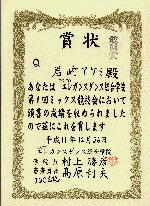 賞状
岩崎アケミ殿
あなたはエレガンスダンス総合学院
第1回ミックス競技会において
頭書の成績を収められました
ので茲にこれを賞します
平成11年12月26日
エレガンスダンス総合学院
学院長 村上勝彦
審査委員長 高原利夫